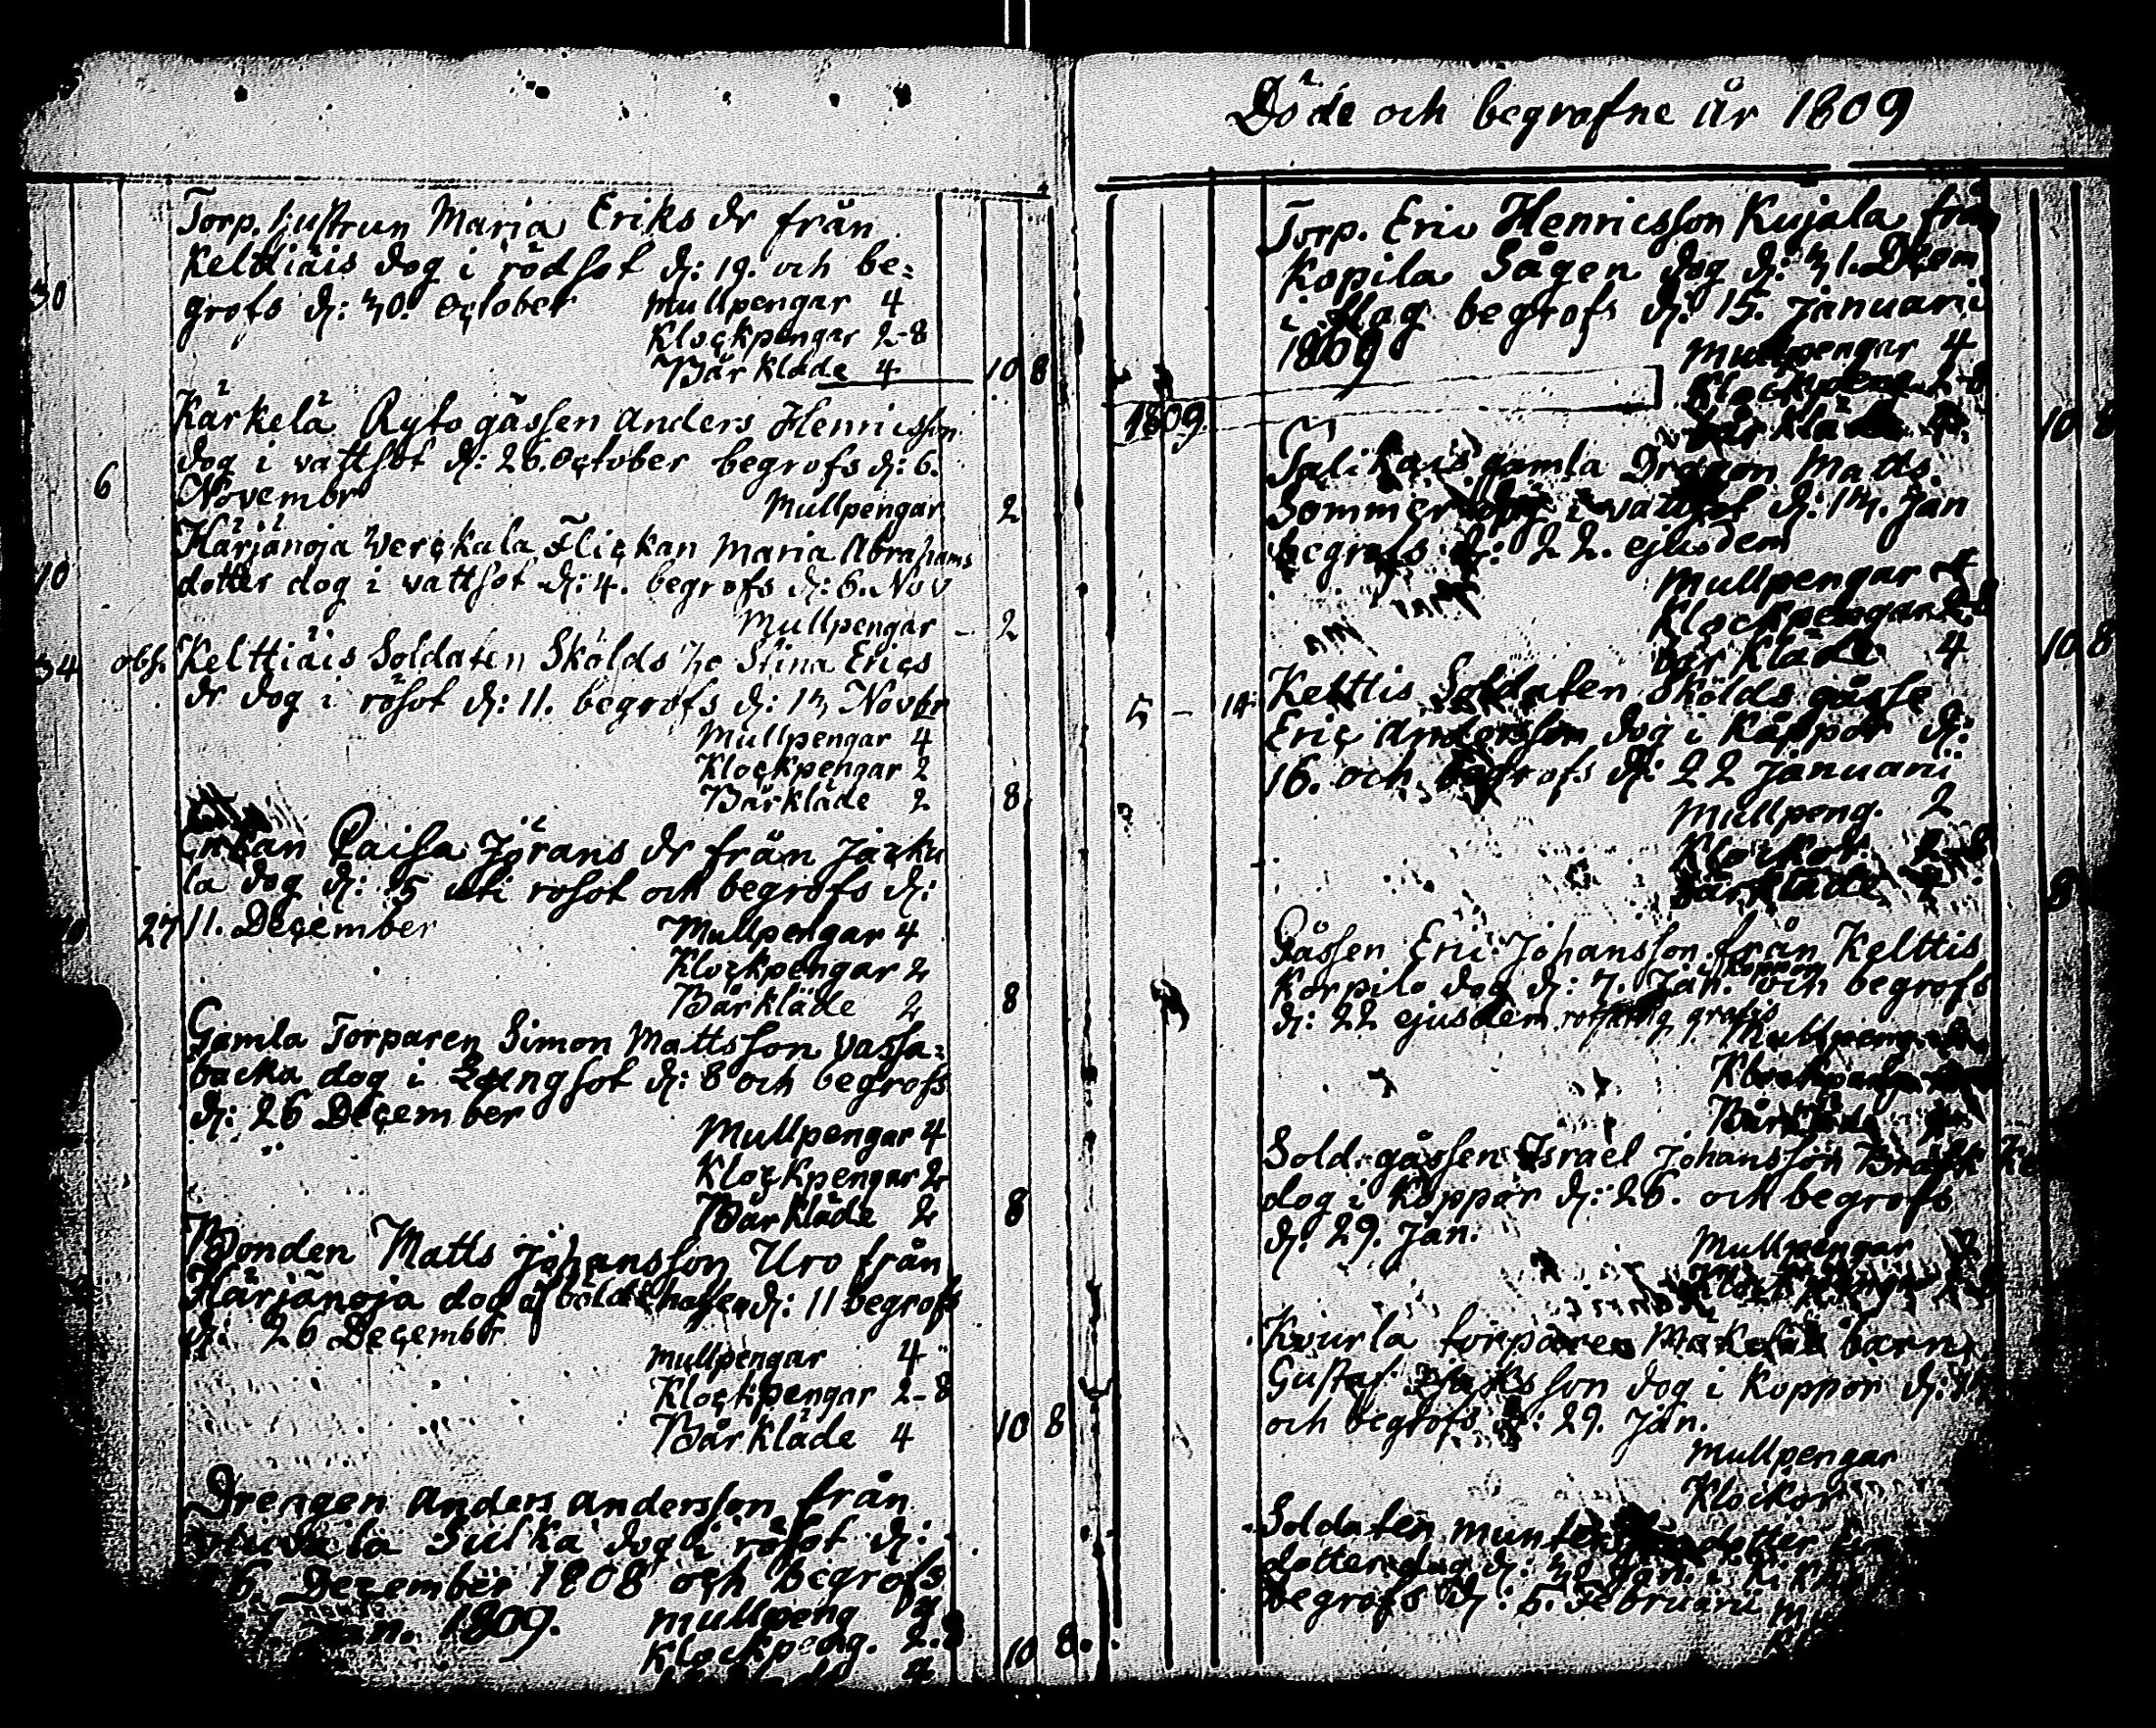 Torp. hustrun Maria Eriks dr från
Kelttiäis dog i rödsot d: 19. och be=
30 grofs d: 30. October Mullpengar 4
Klockpengar 2-8
Bårkläde 4 10 8
Kärkelä Ryto gåssen Anders Henricsson
dog i vattsot d: 26. October begrofs d: 6.
6 Novembr Mullpengar 2
Härjänoja Verckala Flickan Maria Abrahams
10 dotter dog i vattsot d: 4. begrofs d: 6. Nov
Mullpengar - 2
34 obs. Kelttiäis Soldaten Skölds Stina Erics
dr dog i rösot d: 11. begrofs d: 13 Novbr
Mullpengar 4
Klockpengar 2
Bårkläde 2 8
Enkan Caisa Jörans dr från Jacku
la dog d: 5 uti rosot och begrofs d:
27 11. December Mullpengar 4
Klockpengar 2
Bårkläde 2 8
Gamla Torparen Simon Mattsson Vassa=
backa dog i Lungsot d: 8 och begrofs
d: 26 December
Mullpengar 4
Klockpengar 2
Bårkläde 2 8
Bonden Matts Johansson Uro från
Härjänoja dog af d: 11 begrofs
d: 26 Decembr
Mullpengar 4
Klockpengar 2-8
Bårkläde 4 10 8
Drengen Anders Andersson från
Sulka dog i rösot d:
6 December 1808 och begrofs
Jan. 1809. Mullpeng 4
Klockpeng. 2.8 10 8.
Döde och begrofne år 1809
Torp. Eric Henricsson Kujala från
Kopila Sågen dog d: 31. Decem
i slag begrofs d: 15. Januarii
1809 Mullpengar 4
Klockpeng 2-8
1809 Bårkläde 4 10 8
Salikais gamla Dragon Matts
Sommer dog i vattsot d: 13. Jan
begrofs d: 22. ejusdem
Mullpengar 4
Klockpengar 2-8
Bårkläde 4 10 8
5 - 14 Kelttis Soldaten Skölds gåsse
Eric Andersson dog i Kåppor d:
16. och begrofs d: 22 Januarii
Mullpeng. 2
Klockor 2-8
Bårkläde 2 8
Gåssen Eric Johansson från Kelttis
Korpilo dog d: 7. Jan. koppor och begrofs
d: 22 ejusdem gratis
Mullpeng
Klockpeng
Bårkläde
Sold. gåssen Israel Johansson Brask
dog i Koppor d: 26. och begrofs
d: 29. Jan.
Mullpengar 2
Klockpengar
Kourla torparen barn
Gustaf dog i koppor d:
och begrofs d: 29. Jan.
Mullpengar
Klockor
Soldaten Munters dotter
dotter dog d: 30 Jan. i
begrofs d: 5. Februarii